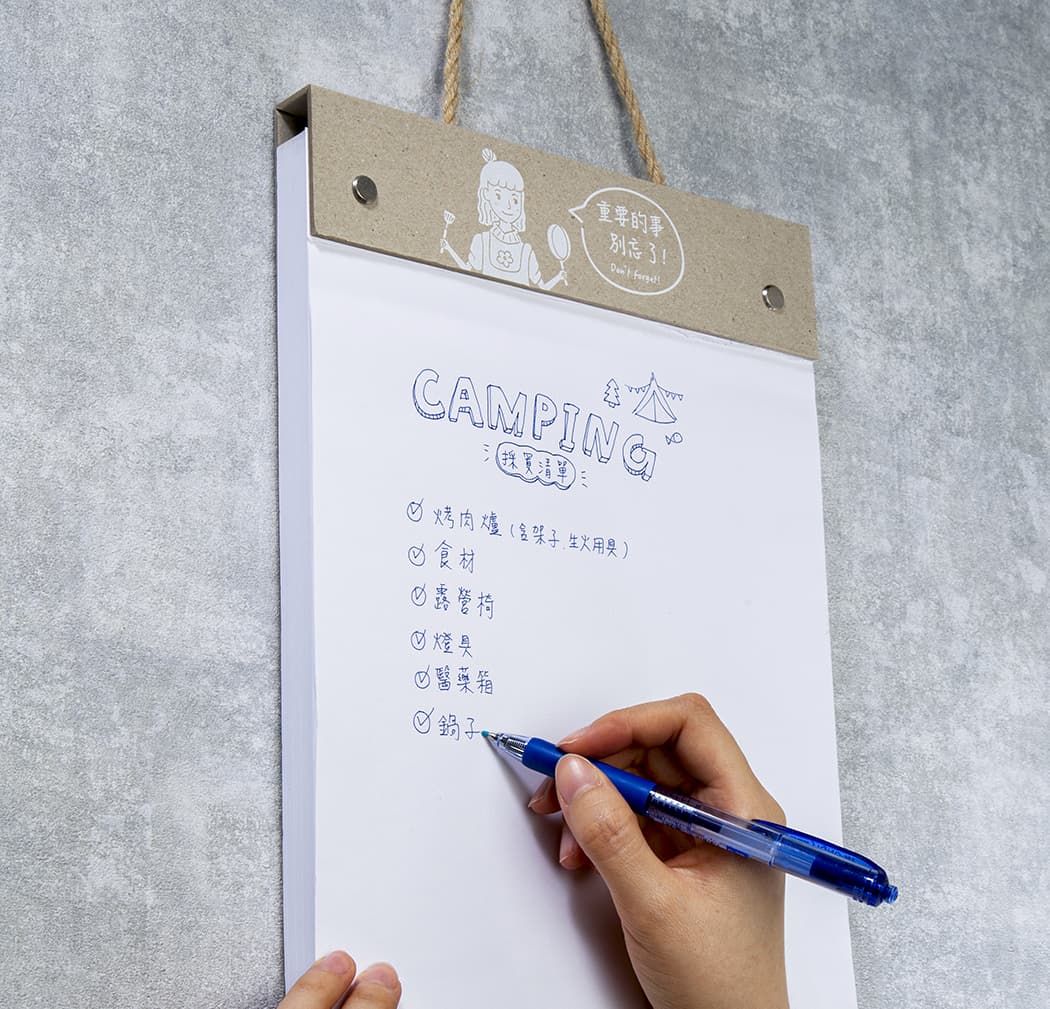 重要的事
別忘了!
Don't forget!
CAMPING
採買清單
烤肉爐(含架子.生火用具)
食材
露營椅
燈具
醫藥箱
鍋子